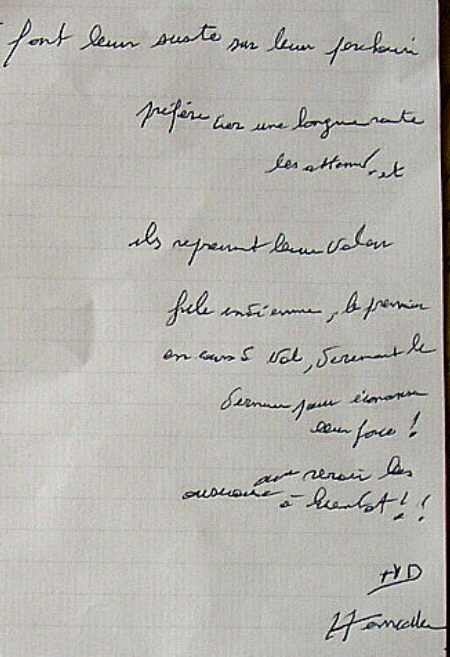 font leur sieste sur leur perchoir
préfère car une longue route
les attend, et
ils reprennent leur vol en
file indienne, le premier
en cours de vol, devenant le
dernier pour économiser
leur force !
au revoir les
oiseaux à bientôt ! !